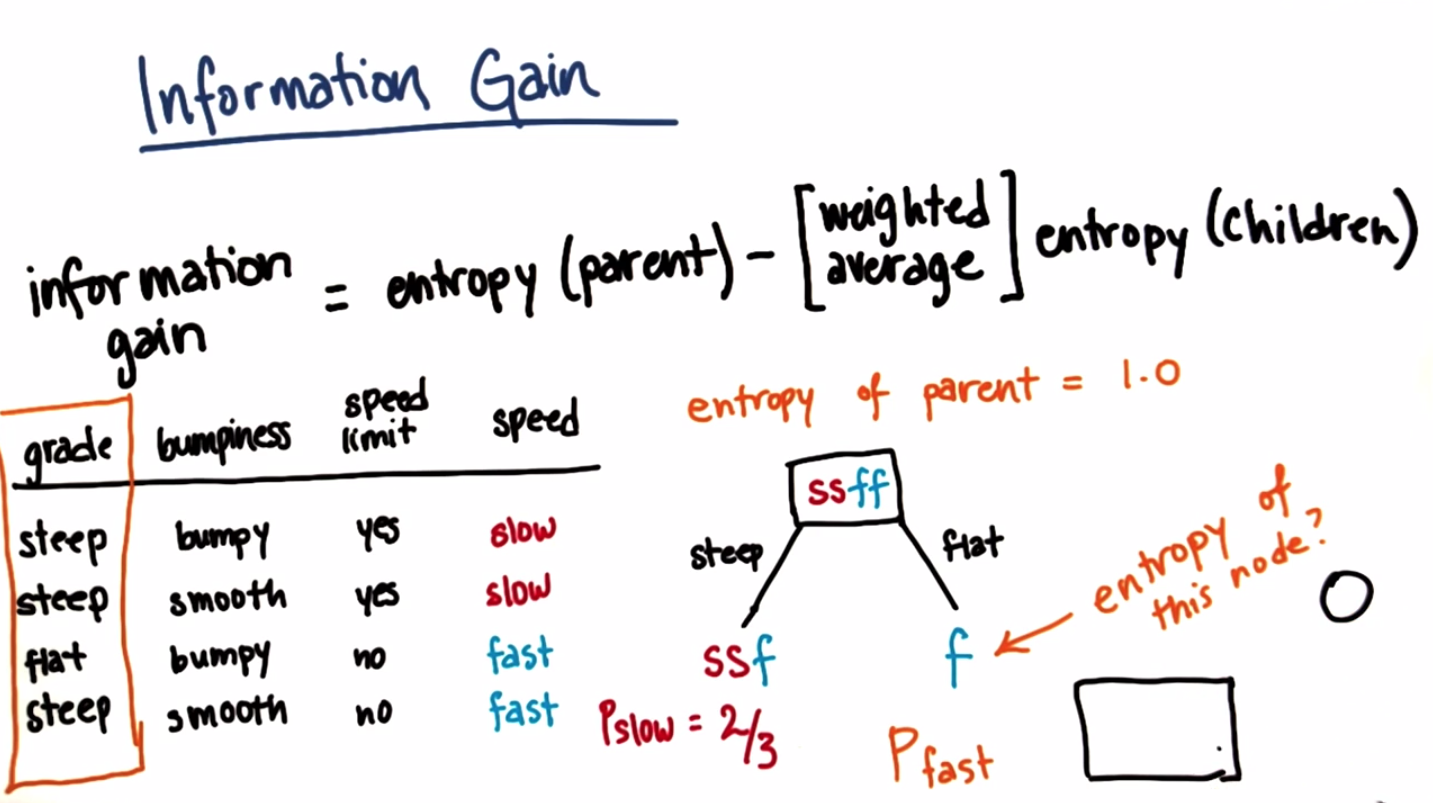 Information Gain
information gain = entropy (parent) - [weighted average] entropy (children)
entropy of parent = 1.0
grade bumpiness speed limit speed
steep bumpy yes slow
steep smooth yes slow
flat bumpy no fast
steep smooth no fast
ssff
steep flat
ssf f
entropy of this node?
Pslow = 2/3
Pfast